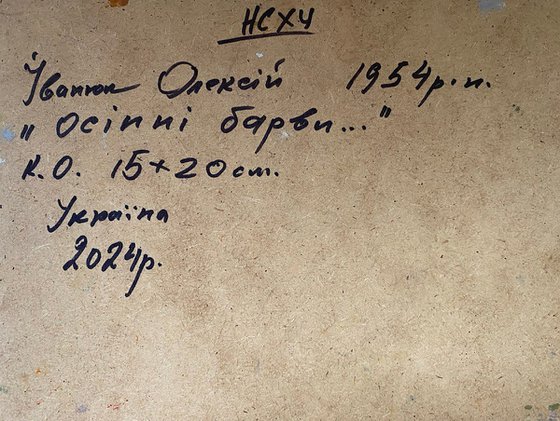 НСХУ
Іванюк Олексій 1954р.н.
„Осінні барви..."
К.О. 15×20см.
Україна
2024р.